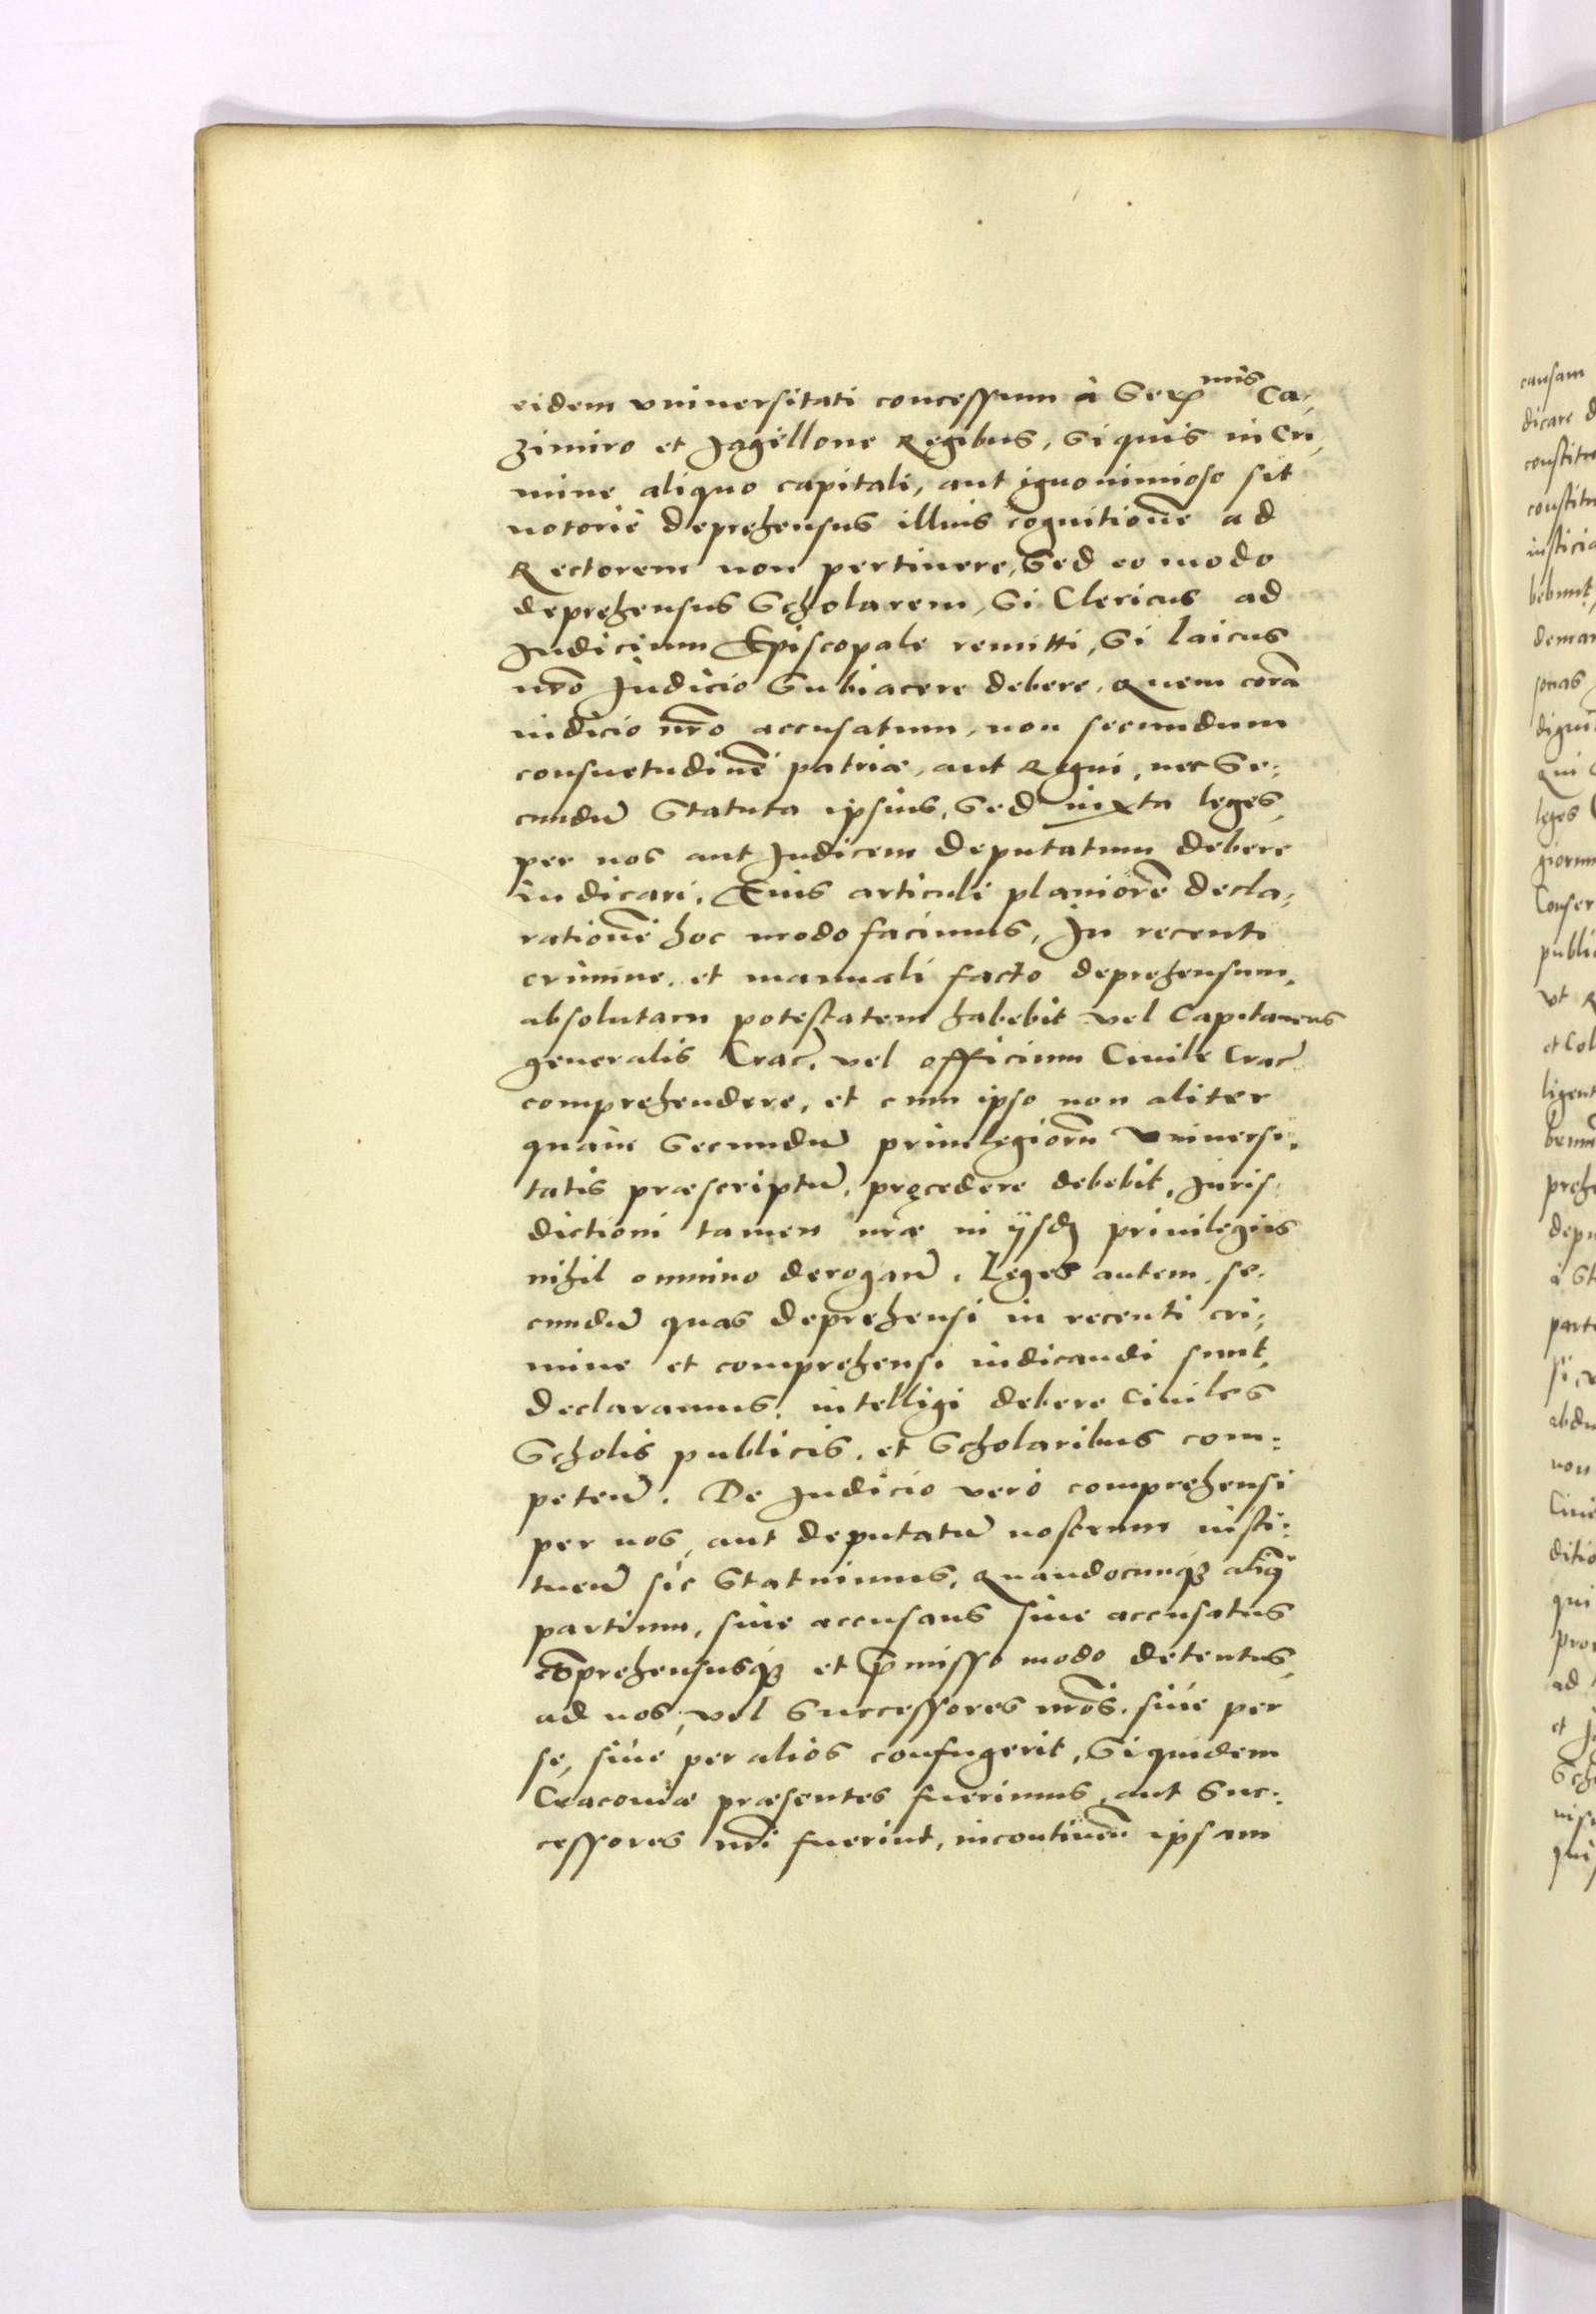 eidem vniuersitati concessum à Ser^mis Ca,
zimiro et Jagellone Regibus, Si quis in Cri,
mine aliquo capitali, aut ignominioso sit
notoriè deprehensus illius cognitionē ad
Rectorem non pertinere, Sed eo modo
deprehensus Scholarem, Si Clericus ad
Judicium Episcopale remitti, Si laicus
nr̄o Judicio Subiacere debere, Quem corā
iudicio nr̄o accusatum, non secundum
consuetudinē patriæ, aut Regni, nec Se:
cundū Statuta ipsius, Sed iuxta leges,
per nos aut Judicem deputatum debere
iudicari. Cuius articuli planiorē decla,
rationē hoc modo facimus, In recenti
crimine, et manuali facto deprehensum,
absolutam potestatem habebit vel Capitaneus
generalis Crac̄. vel officium Ciuile Crac̄
comprehendere, et cum ipso non aliter
quàm Secundū priuilegiorū Vniuersi,
tatis præscriptū, procedere debebit, Juris,
dictioni tamen nr̄æ in ijsdē priuilegijs
nihil omnino derogan̄. Leges autem se,
cundū quas deprehensi in recenti cri,
mine et comprehensi iudicandi sunt,
declaramus, intelligi debere Ciuiles
Scholis publicis, et Scholaribus com:
peten̄. De Judicio verò comprehensi
per nos, aut deputatū nostrum insti:
tuen̄ sic Statuimus, Quandocunq̢ aliq̄
partium, siue accusans siue accusatus
cōprehensusq̢ et p̄misso modo detentus,
ad nos, vel Successores nr̄os, siue per
se, siue per alios confugerit, Siquidem
Cracouiæ præsentes fuerimus, aut Suc:
cessores nr̄i fuerint, incontinen̄ ipsam